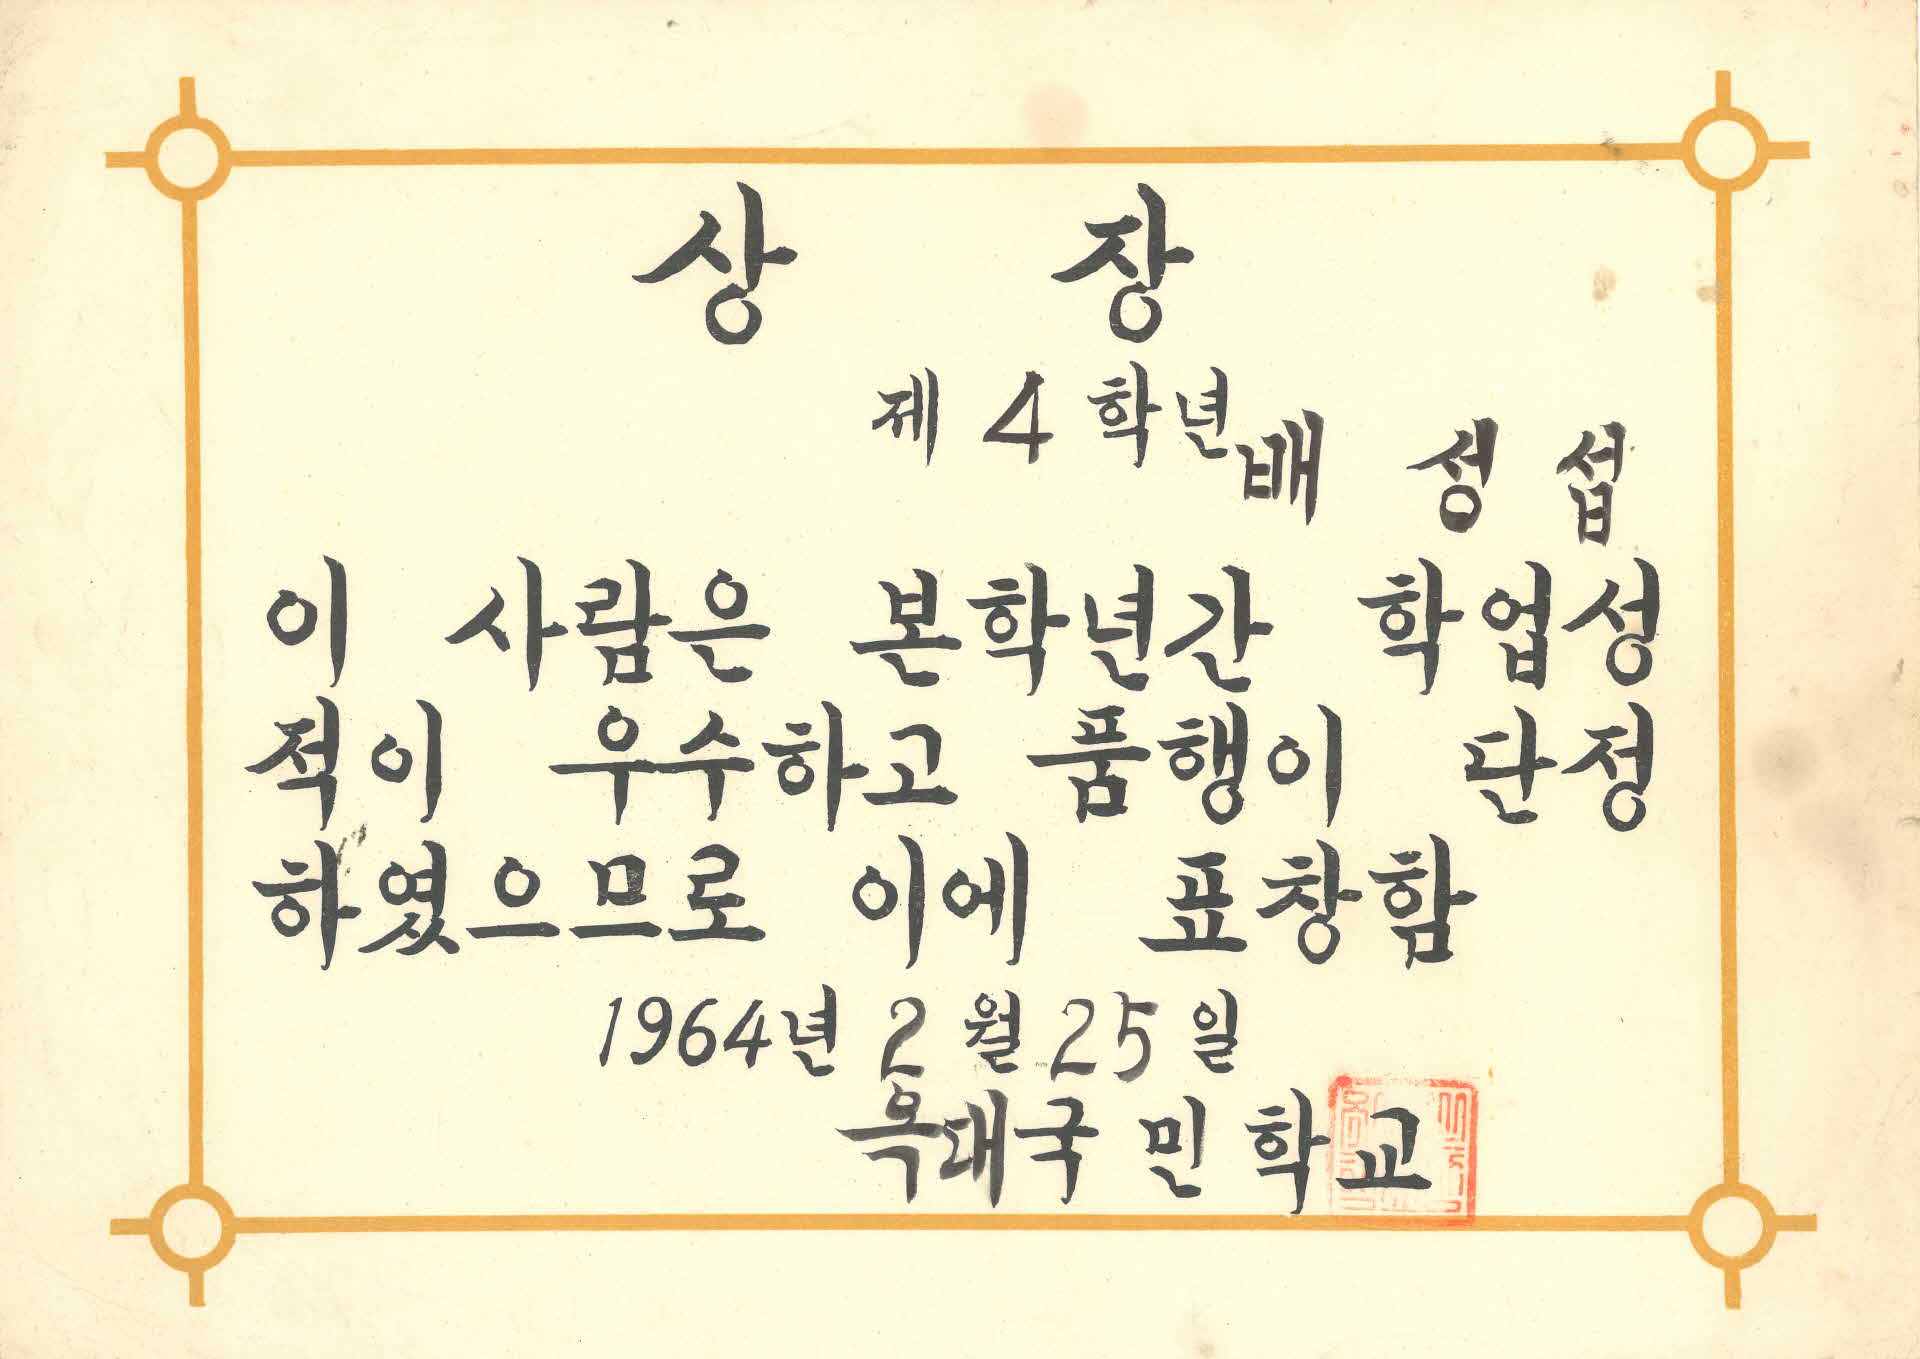 상 장
제 4 학년
배 성 섭
이 사람은 본학년간 학업성
적이 우수하고 품행이 단정
하였으므로 이에 표창함
1964년 2 월 25 일
옥대국민학교